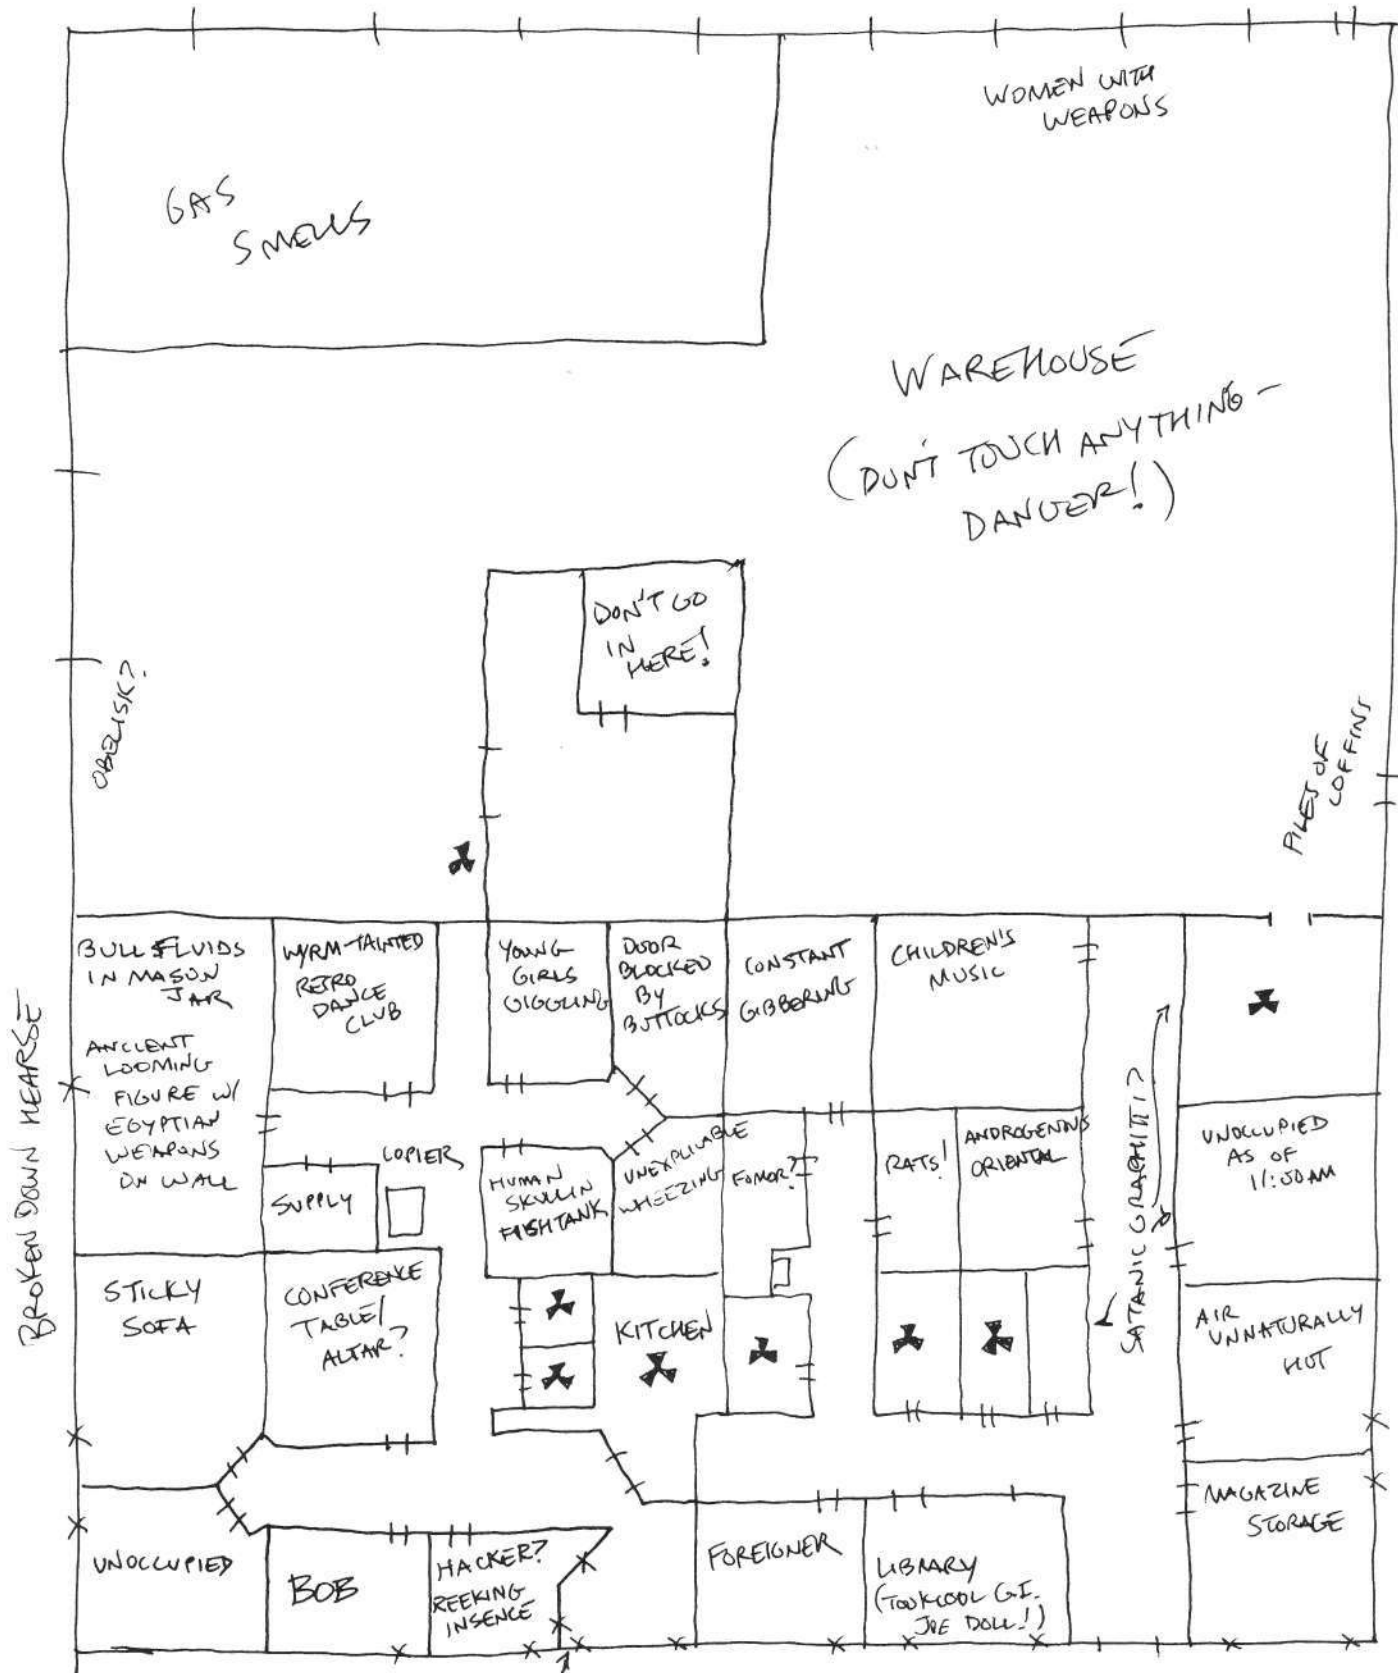 WOMEN WITH
WEAPONS
GAS
SMELLS
WAREHOUSE
(DON'T TOUCH ANYTHING -
DANGER!)
DON'T GO
IN
HERE!
OBELISK?
PILES OF
COFFINS
BROKEN DOWN HEARSE
BULL FLUIDS
IN MASON
JAR
ANCIENT
LOOMING
FIGURE W/
EGYPTIAN
WEAPONS
ON WALL
WYRM-TAINTED
RETRO
DANCE
CLUB
YOUNG
GIRLS
GIGGLING
DOOR
BLOCKED
BY
BUTTOCKS
CONSTANT
GIBBERING
CHILDREN'S
MUSIC
SATANIC GRAPHITI?
UNOCCUPIED
AS OF
11:00AM
COPIER
SUPPLY
HUMAN
SKULL IN
FISHTANK
UNEXPLICABLE
WHEEZING
FOMOR?
RATS!
ANDROGENINS
ORIENTAL
STICKY
SOFA
CONFERENCE
TABLE/
ALTAR?
KITCHEN
AIR
UNNATURALLY
HOT
MAGAZINE
STORAGE
UNOCCUPIED
BOB
HACKER?
REEKING
INSENCE
FOREIGNER
LIBRARY
(TOOK COOL G.I.
JOE DOLL!)